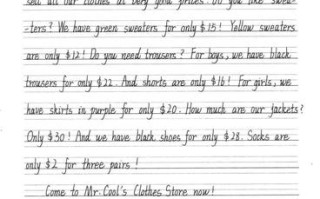 sell all our clothes at very good prices. Do you like swea-
-ters? We have green sweaters for only $15! Yellow sweaters
are only $12! Do you need trousers? For boys, we have black
trousers for only $22. And shorts are only $16! For girls, we
have skirts in purple for only $20. How much are our jackets?
Only $30! And we have black shoes for only $28. Socks are
only $2 for three pairs!
Come to Mr. Cool's Clothes Store now!